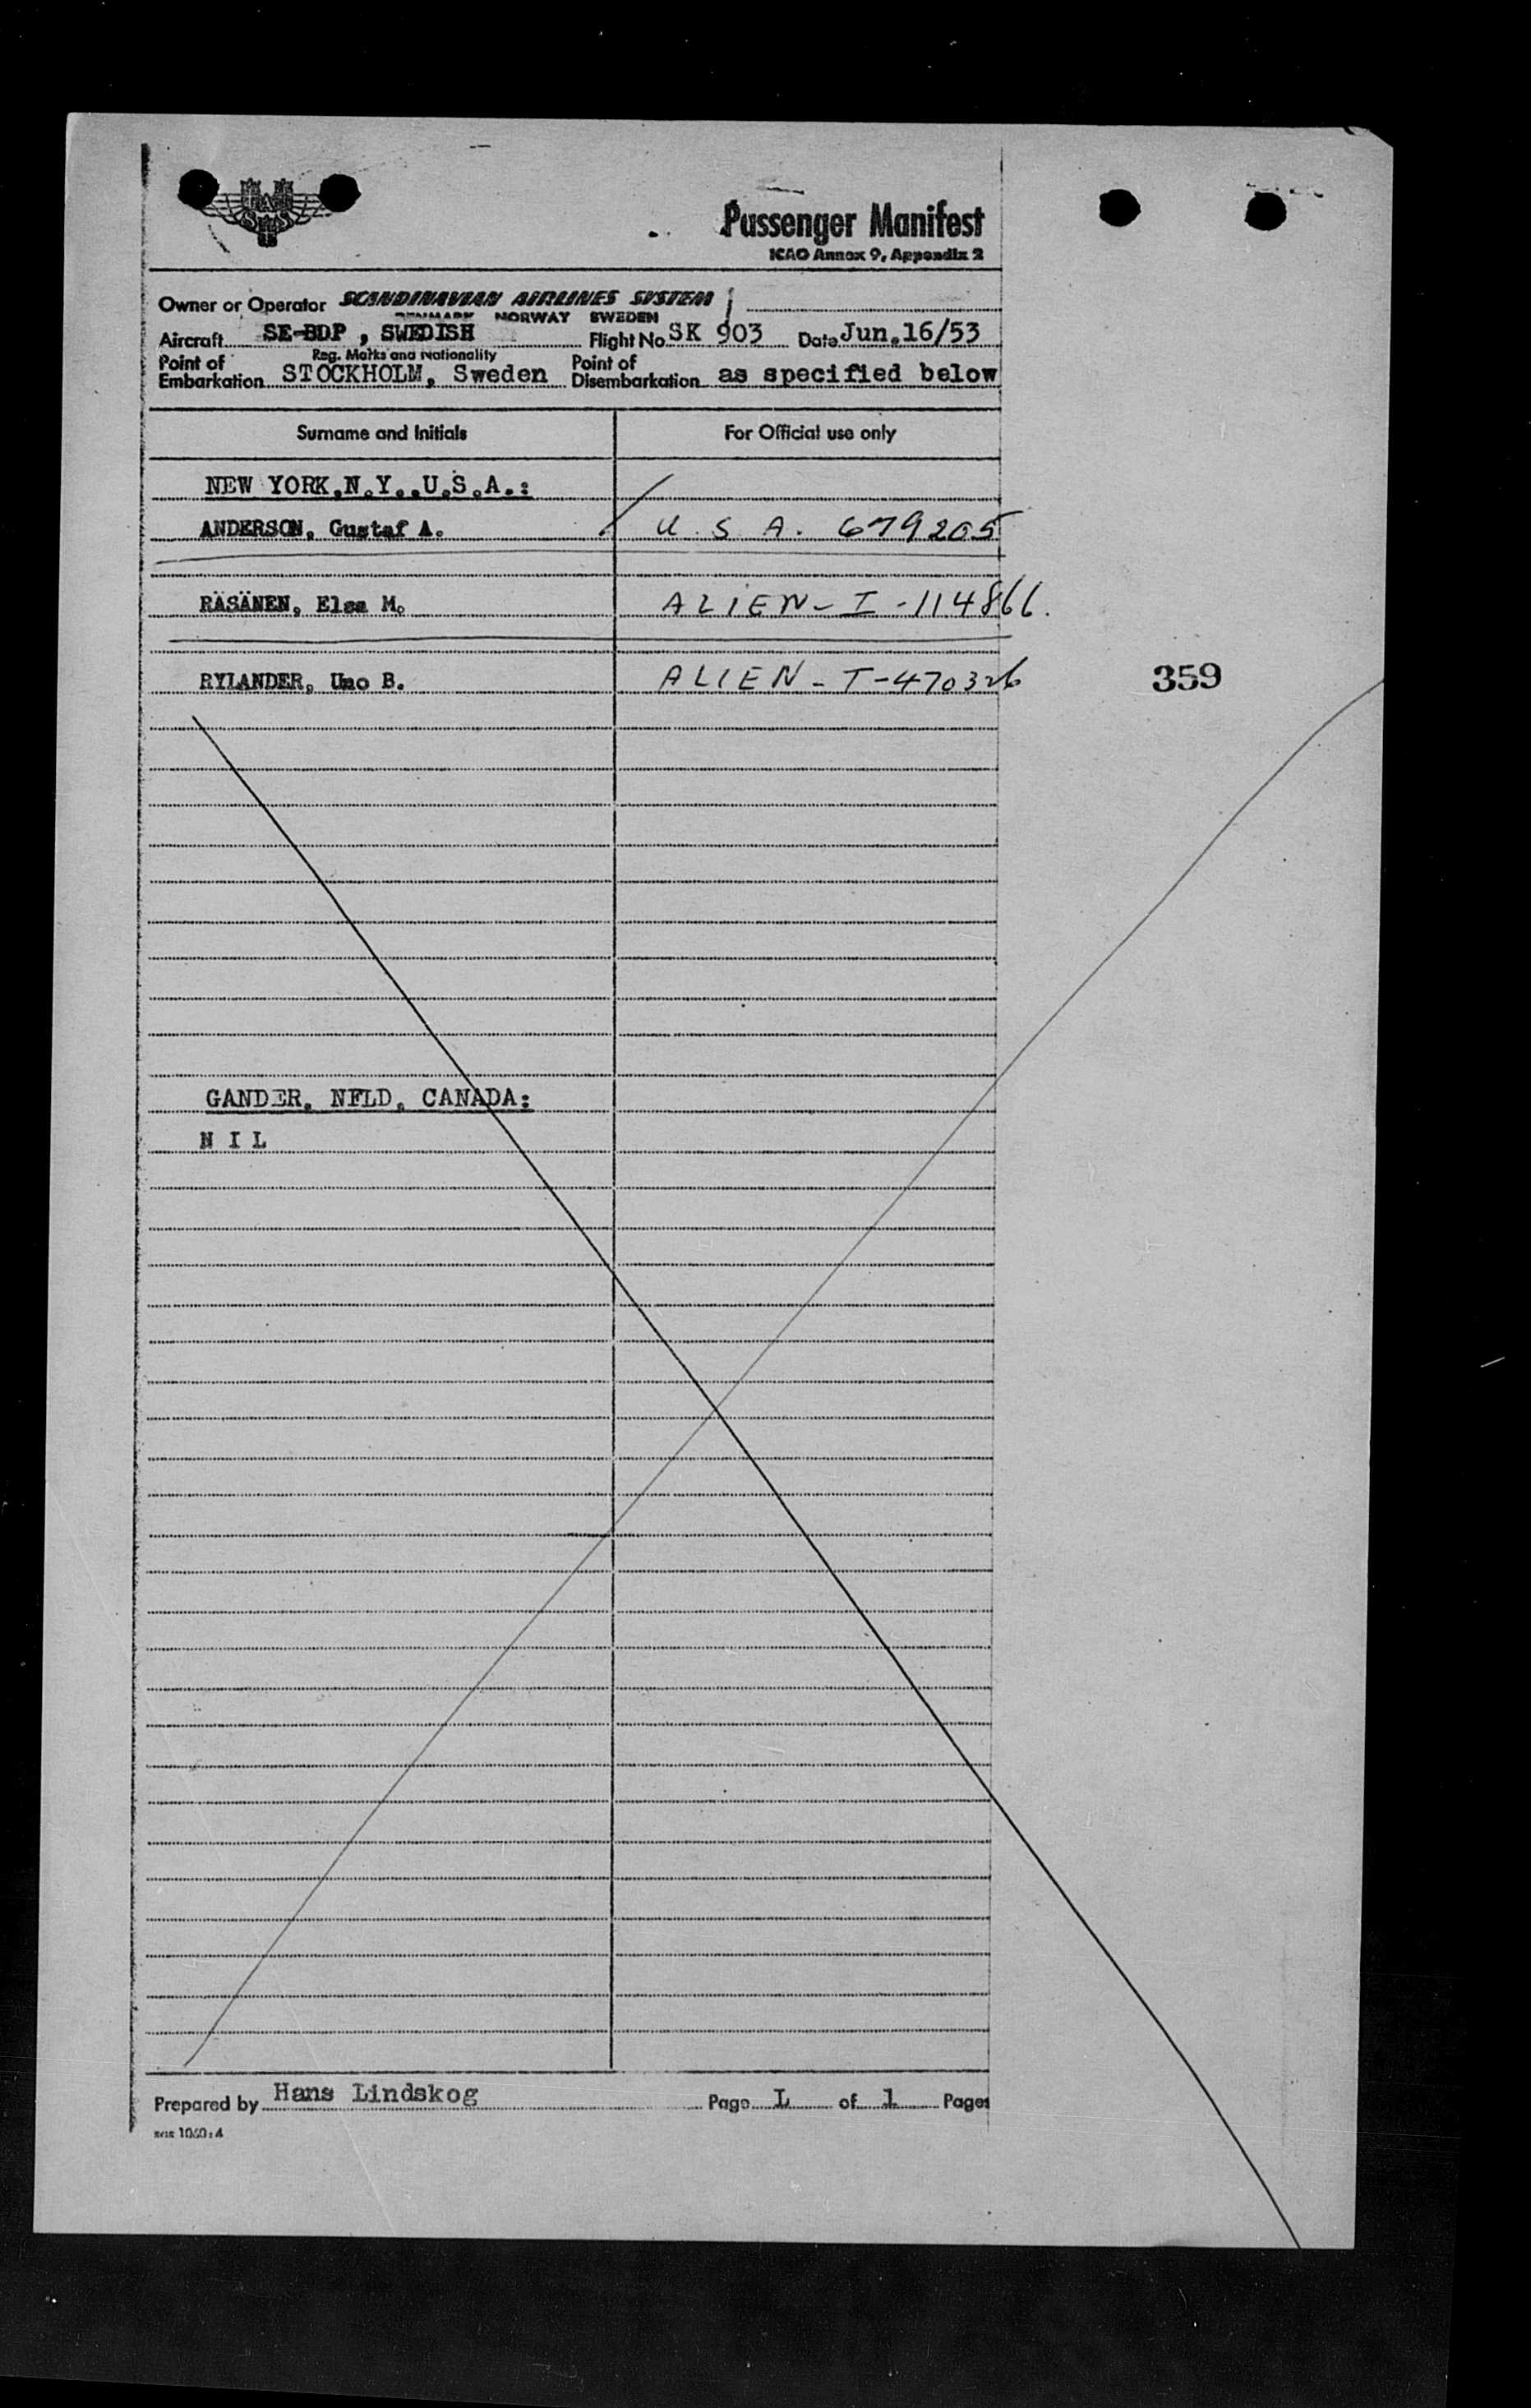 SAS
Passenger Manifest
ICAO Annex 9, Appendix 2
Owner or Operator SCANDINAVIAN AIRLINES SYSTEM
DENMARK NORWAY SWEDEN
Aircraft SE-BDP , SWEDISH Flight No SK 903 Date Jun.16/53
Reg. Marks and Nationality
Point of Embarkation STOCKHOLM, Sweden Point of Disembarkation as specified below
Surname and Initials For Official use only
NEW YORK,N.Y.,U.S.A.:
ANDERSON, Gustaf A. U.S.A. 679205
RÄSÄNEN, Elsa M. ALIEN-I-114866.
RYLANDER, Uno B. ALIEN-T-470326
359
GANDER, NFLD, CANADA:
N I L
Prepared by Hans Lindskog Page L of 1 Pages
1060:4